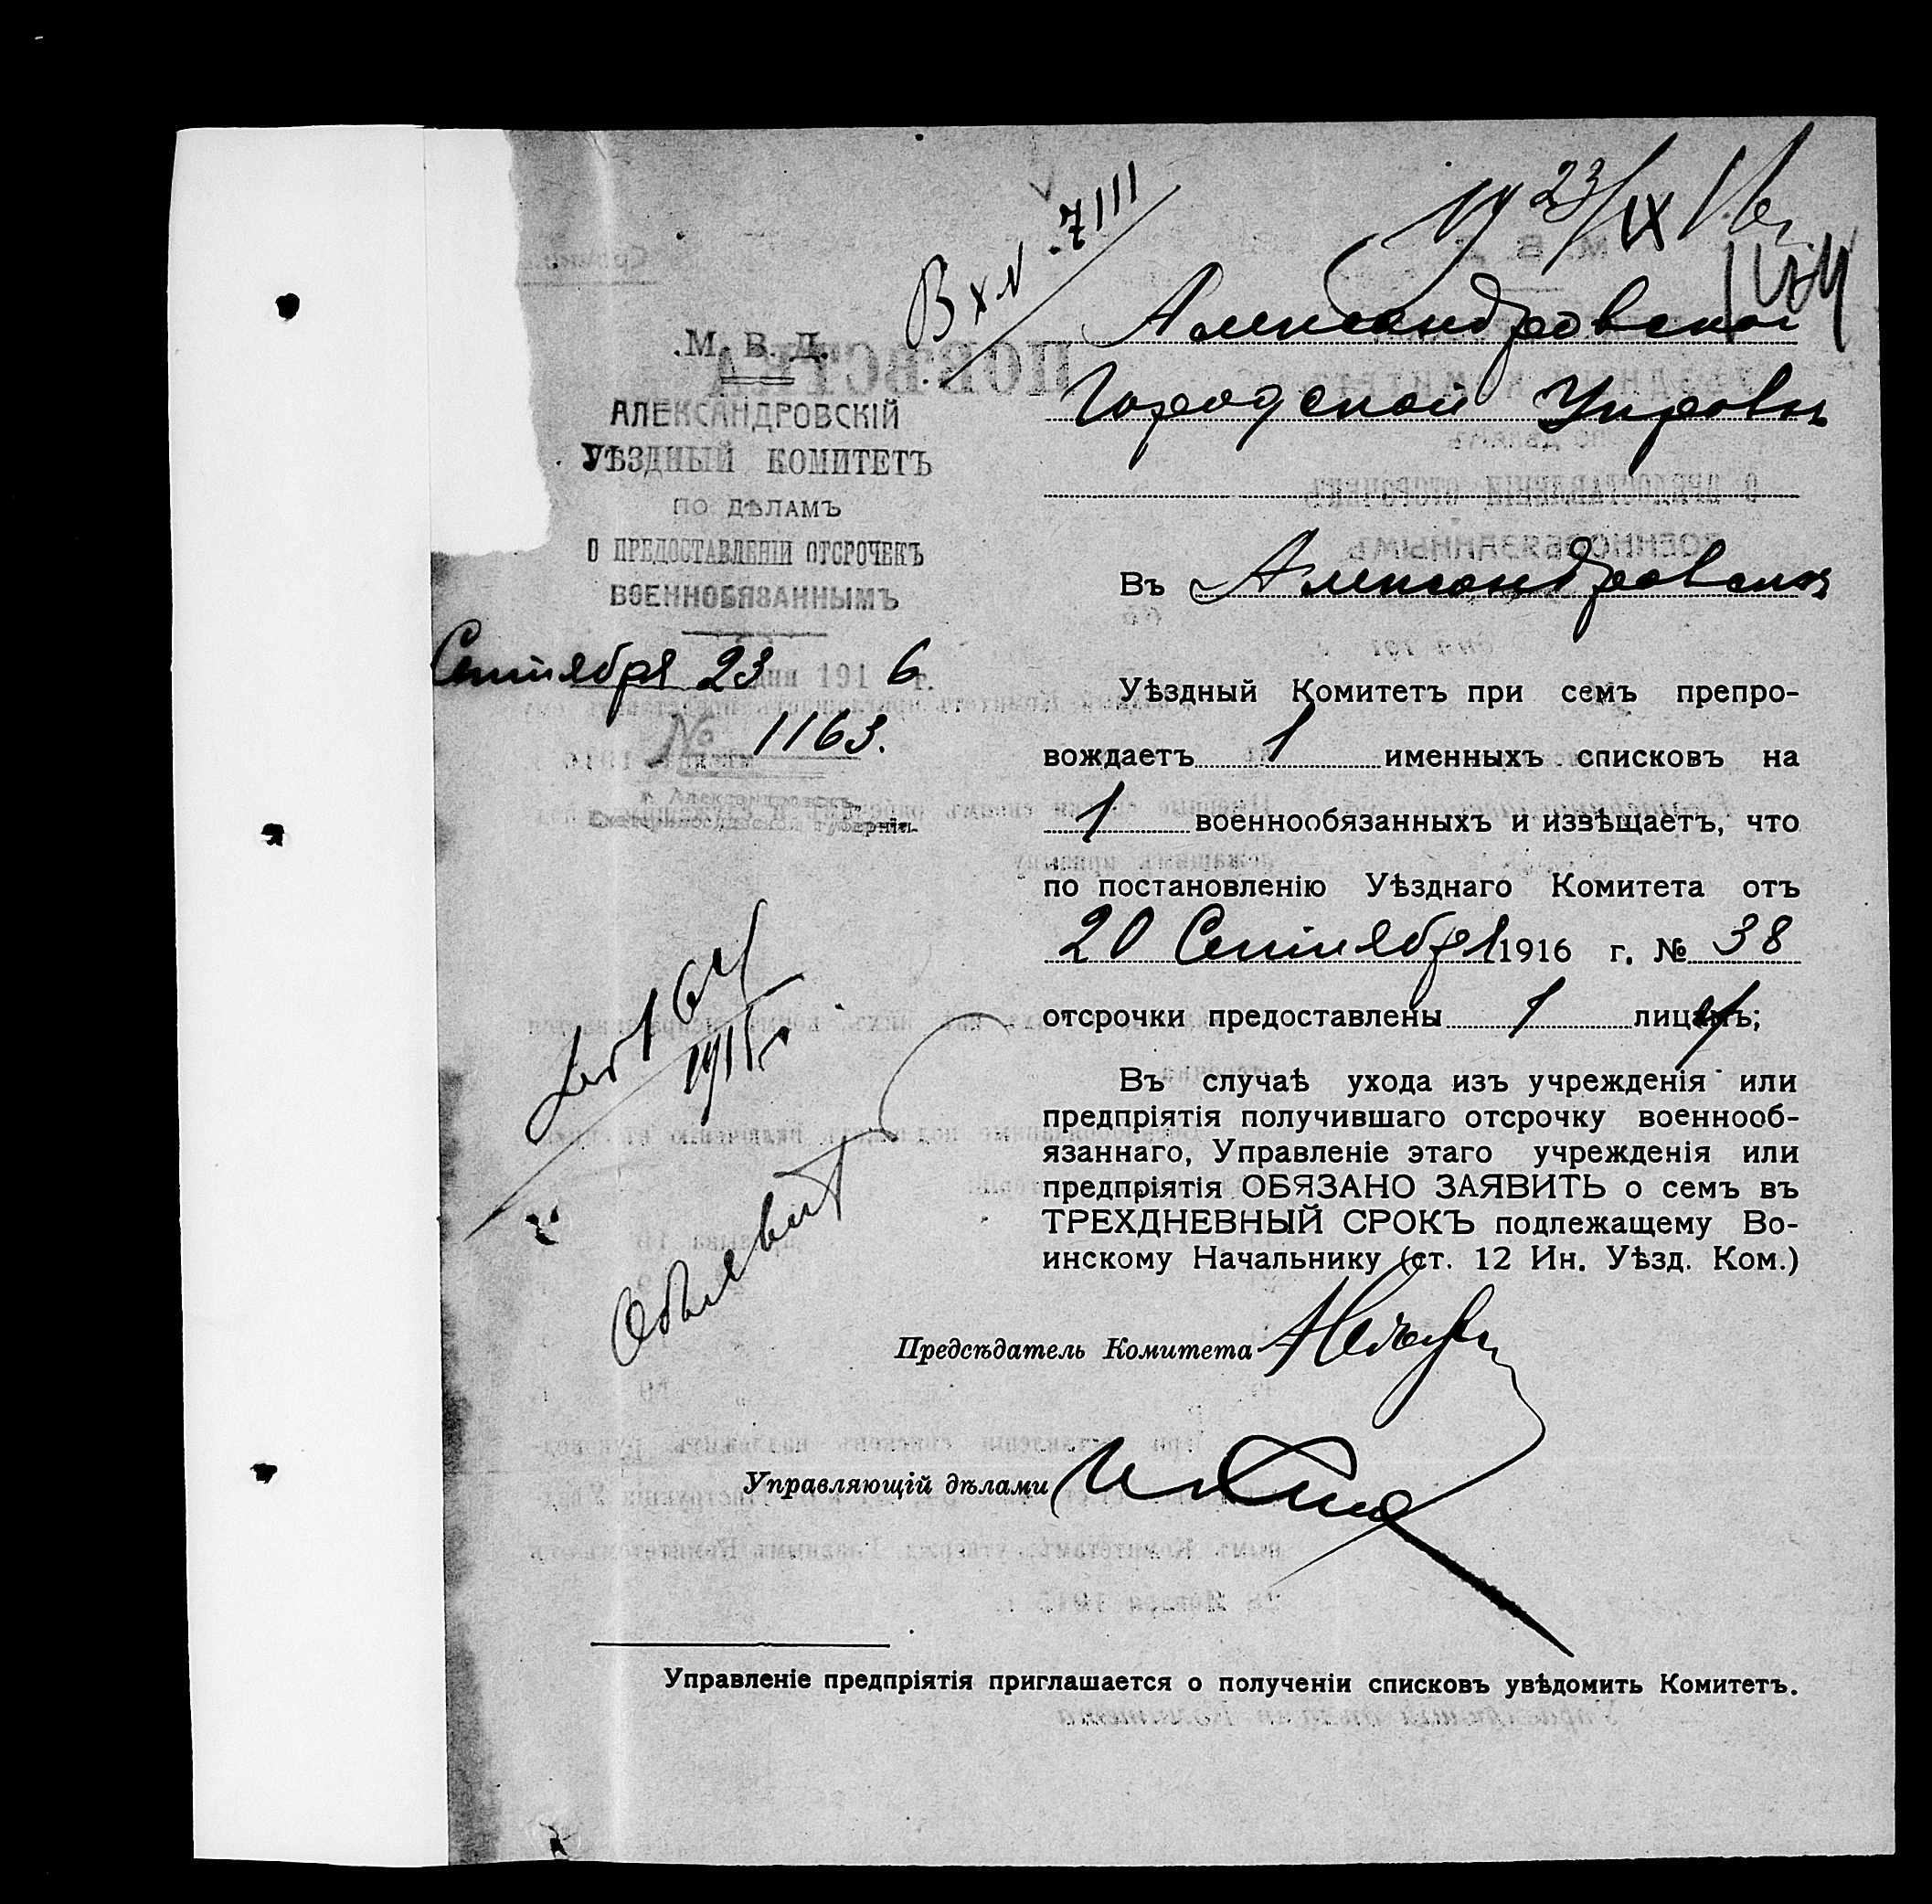 Вх № 7111
23/IX 16 г.
М. В. Д.
АЛЕКСАНДРОВСКІЙ
УѢЗДНЫЙ КОМИТЕТЪ
ПО ДѢЛАМЪ
О ПРЕДОСТАВЛЕНІИ ОТСРОЧЕКЪ
ВОЕННОБЯЗАННЫМЪ
Сентября 23 дня 1916 г.
№ 1163.
г. Александровскъ,
Екатеринославской губерніи.
Александровской
Городской Управѣ
Въ Александровскѣ
Уѣздный Комитетъ при семъ препро-
вождаетъ 1 именныхъ списковъ на
1 военнообязанныхъ и извѣщаетъ, что
по постановленію Уѣзднаго Комитета отъ
20 Сентября 1916 г. № 38
отсрочки предоставлены 1 лицамъ;
Въ случаѣ ухода изъ учрежденія или
предпріятія получившаго отсрочку военнооб-
язаннаго, Управленіе этаго учрежденія или
предпріятія ОБЯЗАНО ЗАЯВИТЬ о семъ въ
ТРЕХДНЕВНЫЙ СРОКЪ подлежащему Во-
инскому Начальнику (ст. 12 Ин. Уѣзд. Ком.)
Объявить
Предсѣдатель Комитета
Управляющій дѣлами
Управленіе предпріятія приглашается о полученіи списковъ увѣдомить Комитетъ.